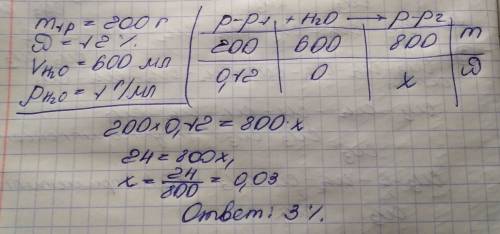 m₁р = 200 г
ω = 12 %
V H₂O = 600 мл
ρ H₂O = 1 г/мл
р-р₁ + H₂O ⟶ р-р₂
200 | 600 | 800 | m
0,12 | 0 | x | ω
200 × 0,12 = 800 · x
24 = 800x,
x = 24/800 = 0,03
Ответ: 3 %.